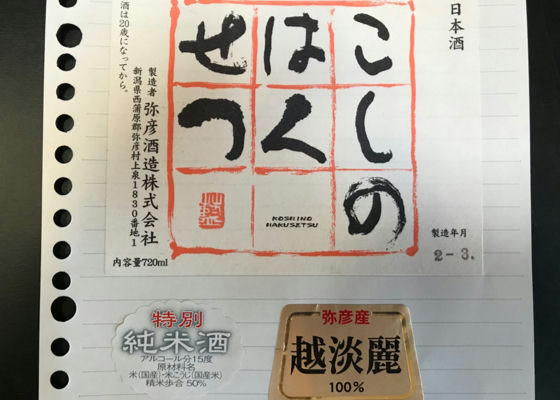 日本酒
こしの
はく
せつ
KOSHINO
HAKUSETSU
製造年月
2-3.
酒は20歳になってから。
製造者 弥彦酒造株式会社
新潟県西蒲原郡弥彦村上泉1830番地1
内容量720ml
特別
純米酒
アルコール分15度
原材料名
米(国産)・米こうじ(国産米)
精米歩合 50%
弥彦産
越淡麗
100%